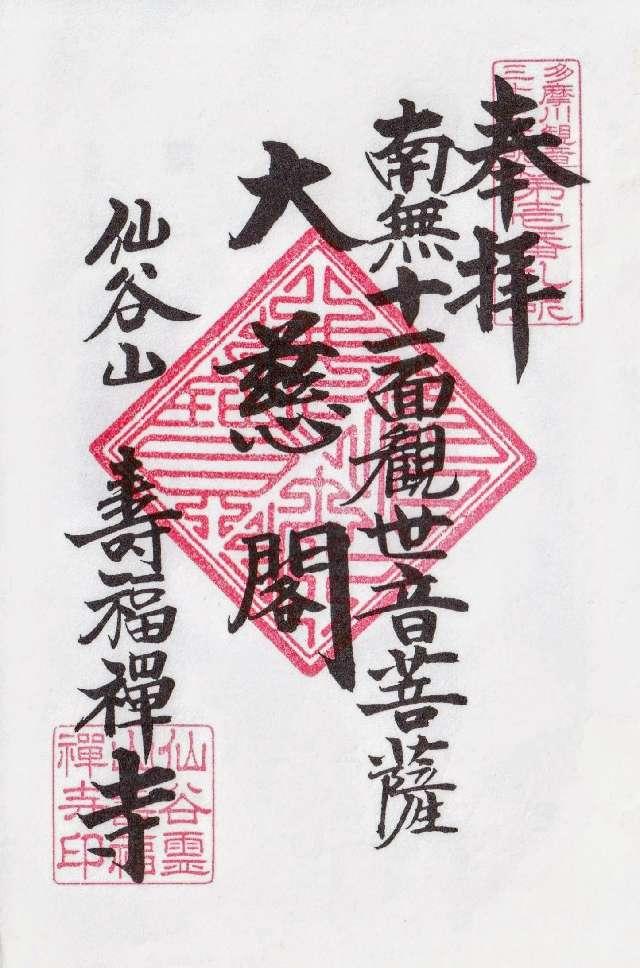 奉拝
南無十一面観世音菩薩
大慈閣
仙谷山
壽福禅寺
多摩川観音
第壱番札所
仙谷霊
山壽福
禅寺印